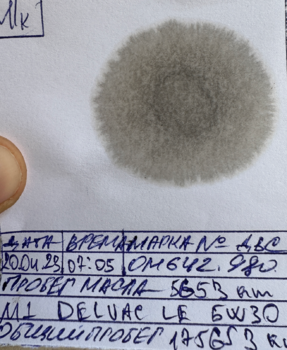 1к
ДАТА ВРЕМЯ МАРКА № ДВС
20.04.23 07:05 OM642.980
ПРОБЕГ МАСЛА 5653 km
M1 DELVAC LE 5W30
ОБЩИЙ ПРОБЕГ 175653 к